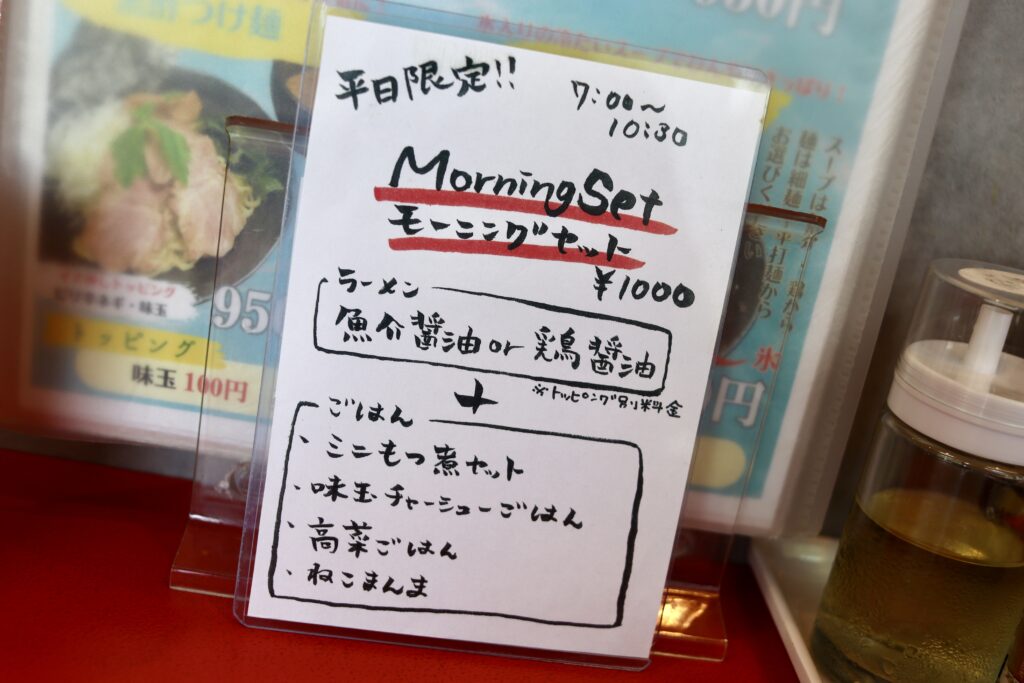 平日限定!!
7:00〜
10:30
Morning Set
モーニングセット
¥1000
ラーメン
魚介醤油 or 鶏醤油
※トッピング別料金
+
ごはん
・ミニもつ煮セット
・味玉チャーシューごはん
・高菜ごはん
・ねこまんま
つけ麺
95
トッピング
味玉 100円
スープは
麺は細麺
平打麺から
お選びく
氷
円